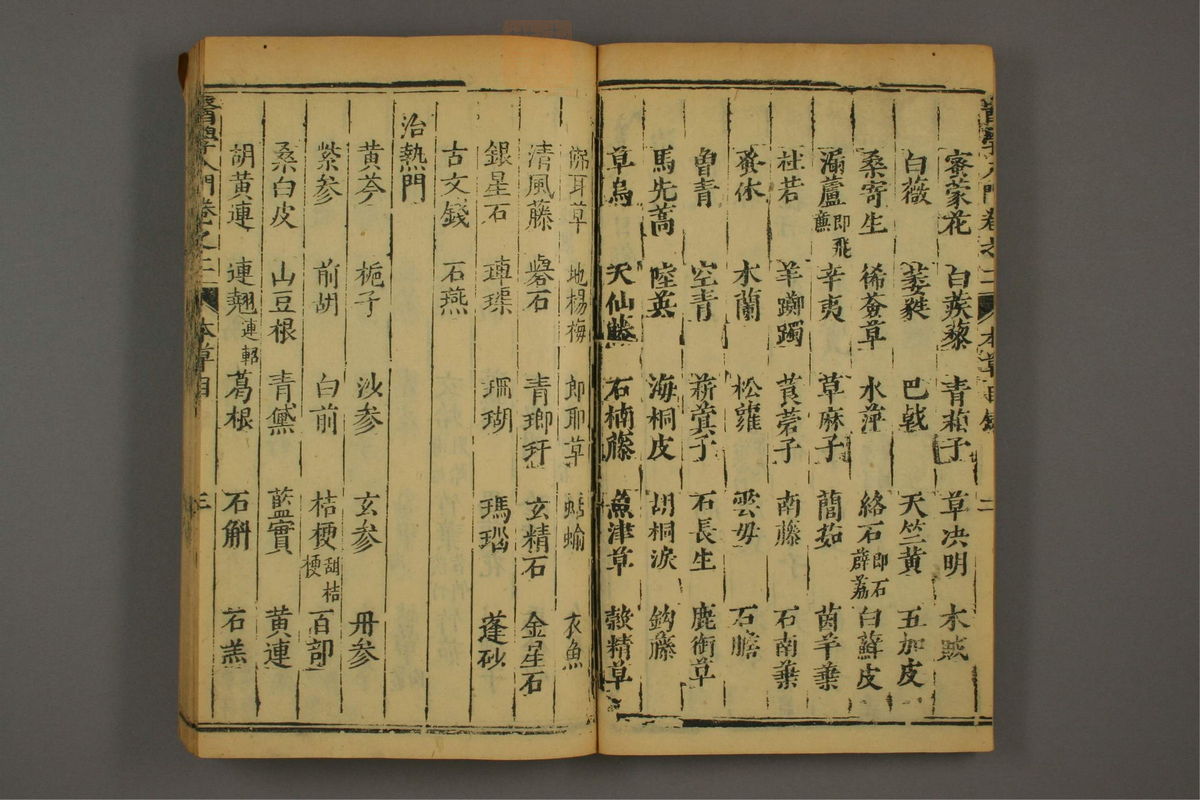 醫學入門卷之二 本草目錄 二
蜜蒙花 白蒺藜 青葙子 草决明 木賊
白薇 萎蕤 巴戟 天竺黃 五加皮
桑寄生 豨薟草 水萍 絡石即石薜荔 白蘚皮
漏蘆即飛蘼 辛夷 草麻子 䕡茹 茵芋葉
杜若 羊躑躅 莨菪子 南藤 石南葉
蚤休 木蘭 松蘿 雲母 石膽
曾青 空青 菥蓂子 石長生 鹿銜草
馬先蒿 陸英 海桐皮 胡桐淚 鈎藤
草烏 天仙藤 石楠藤 魚津草 榖精草
地楊梅 郎耶草 蛞蝓 衣魚
清風藤 礜石 青瑯玕 玄精石 金星石
銀星石 硨磲 珊瑚 瑪瑙 蓬砂
古文錢 石燕
治熱門
黃芩 梔子 沙參 玄參 丹參
紫參 前胡 白前 桔梗甜桔梗 百部
桑白皮 山豆根 青黛 藍實 黃連
胡黃連 連翹連軺 葛根 石斛 石羔
醫學入門卷之二 本草目 三